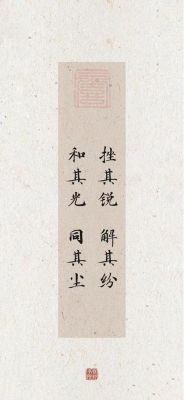 挫其锐 解其纷
和其光 同其尘